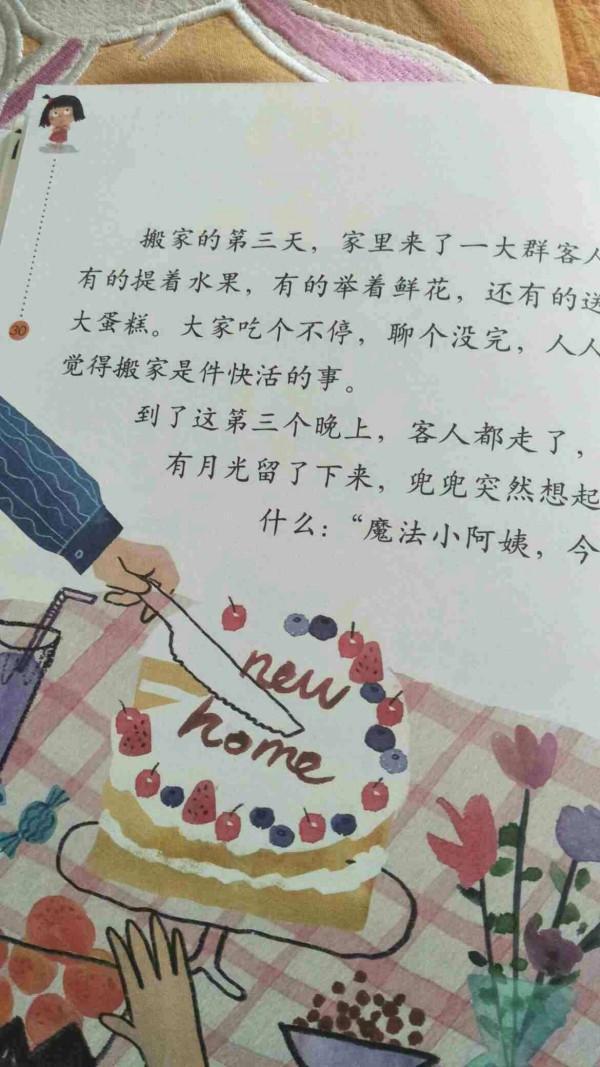 搬家的第三天，家里来了一大群客人
有的提着水果，有的举着鲜花，还有的送
大蛋糕。大家吃个不停，聊个没完，人人
觉得搬家是件快活的事。
到了这第三个晚上，客人都走了，
有月光留了下来，兜兜突然想起
什么：“魔法小阿姨，今
30
new
home